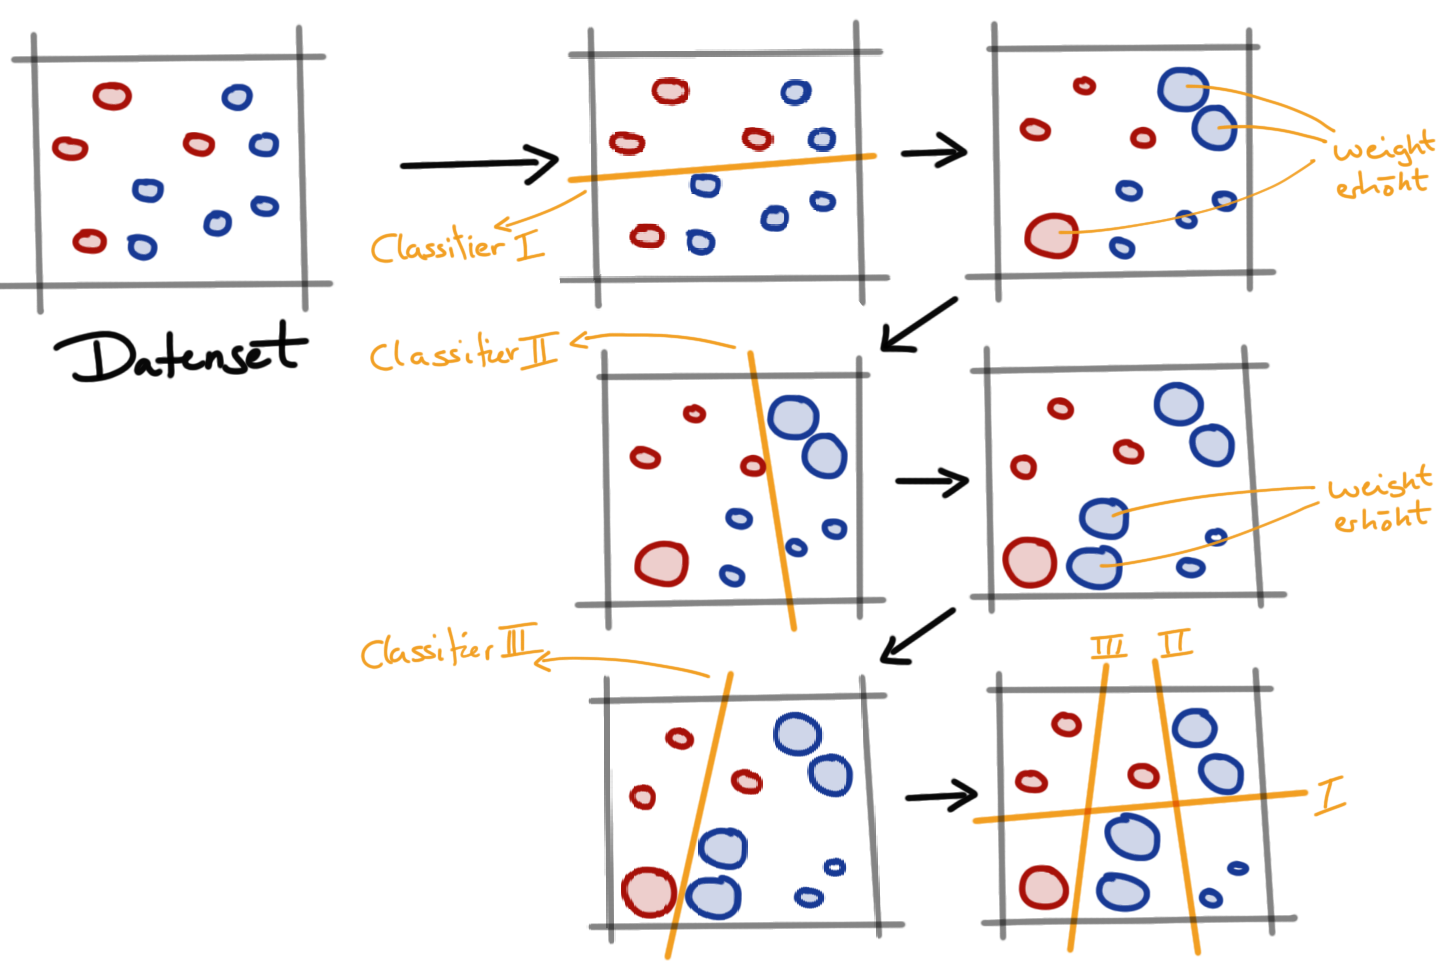 Datenset
Classifier I
weight
erhöht
Classifier II
weight
erhöht
Classifier III
III II
I